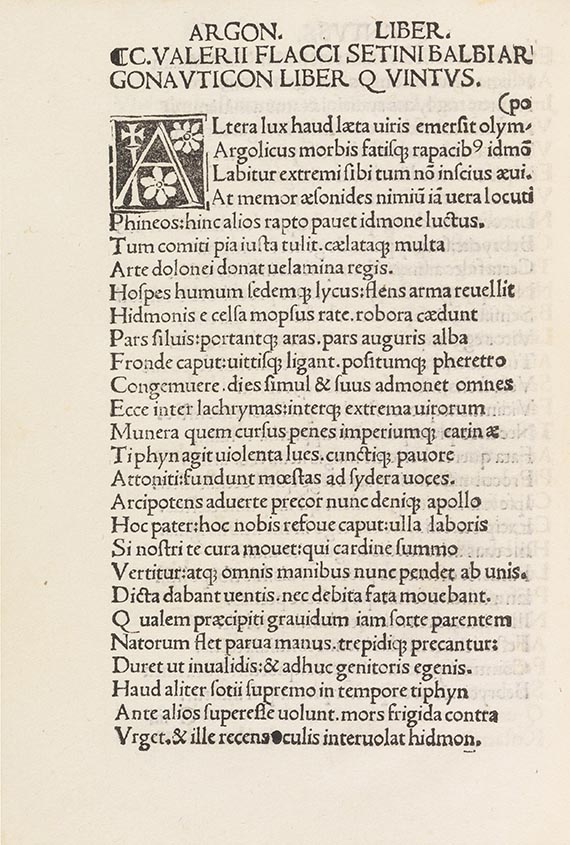 ARGON. LIBER.
⸿C. VALERII FLACCI SETINI BALBI AR
GONAVTICON LIBER QVINTVS.
(po
ALtera lux haud læta uiris emersit olym-
Argolicus morbis fatisq; rapacibꝰ idmō
Labitur extremi sibi tum nō inscius æui.
At memor æsonides nimiū iā uera locuti
Phineos:hinc alios rapto pauet idmone luctus.
Tum comiti pia iusta tulit.cælataq; multa
Arte dolonei donat uelamina regis.
Hospes humum sedemq; lycus:flens arma reuellit
Hidmonis e celsa mopsus rate.robora cædunt
Pars siluis:portantq; aras.pars auguris alba
Fronde caput:uittisq; ligant.positumq; pheretro
Congemuere.dies simul & suus admonet omnes
Ecce inter lachrymas:interq; extrema uirorum
Munera quem cursus penes imperiumq; carinæ
Tiphyn agit uiolenta lues.cunctiq; pauore
Attoniti:fundunt mœstas ad sydera uoces.
Arcipotens aduerte precor nunc deniq; apollo
Hoc pater:hoc nobis refoue caput:ulla laboris
Si nostri te cura mouet:qui cardine summo
Vertitur:atq; omnis manibus nunc pendet ab unis.
Dicta dabant uentis.nec debita fata mouebant.
Qualem præcipiti grauidum iam sorte parentem
Natorum flet parua manus.trepidiq; precantur:
Duret ut inualidis:& adhuc genitoris egenis.
Haud aliter sotii supremo in tempore tiphyn
Ante alios superesse uolunt.mors frigida contra
Vrget.& ille recens oculis interuolat hidmon.